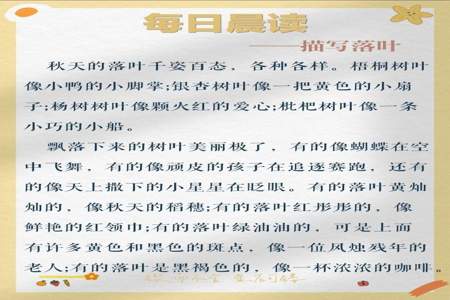 每日晨读
——描写落叶
秋天的落叶千姿百态，各种各样。梧桐树叶
像小鸭的小脚掌;银杏树叶像一把黄色的小扇
子;杨树树叶像颗火红的爱心;枇杷树叶像一条
小巧的小船。
飘落下来的树叶美丽极了，有的像蝴蝶在空
中飞舞，有的像顽皮的孩子在追逐赛跑，还有
的像天上撒下的小星星在眨眼。有的落叶黄灿
灿的，像秋天的稻穗;有的落叶红彤彤的，像
鲜艳的红领巾;有的落叶绿油油的，可是上面
有许多黄色和黑色的斑点，像一位风烛残年的
老人;有的落叶是黑褐色的，像一杯浓浓的咖啡。